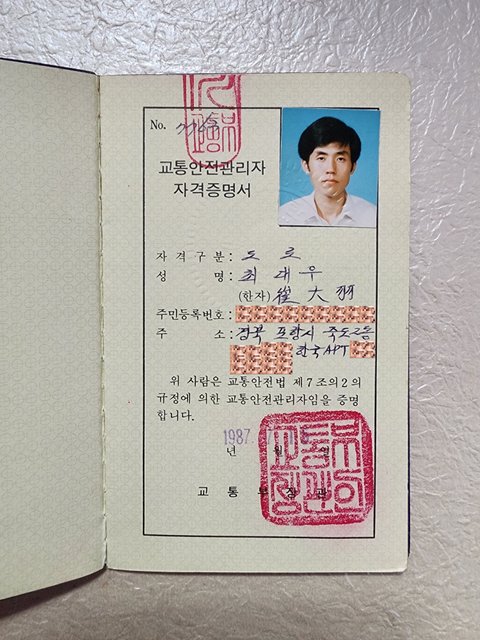 No.
교통안전관리자
자격증명서
자 격 구 분 : 도 로
성 명 : 최 대 우
(한자) 崔 大 羽
주민등록번호 :
주 소 : 경북 포항시 죽도2동
한국APT
위 사람은 교통안전법 제7조의2의
규정에 의한 교통안전관리자임을 증명
합니다.
1987.
년 월 일
교 통 부 장 관